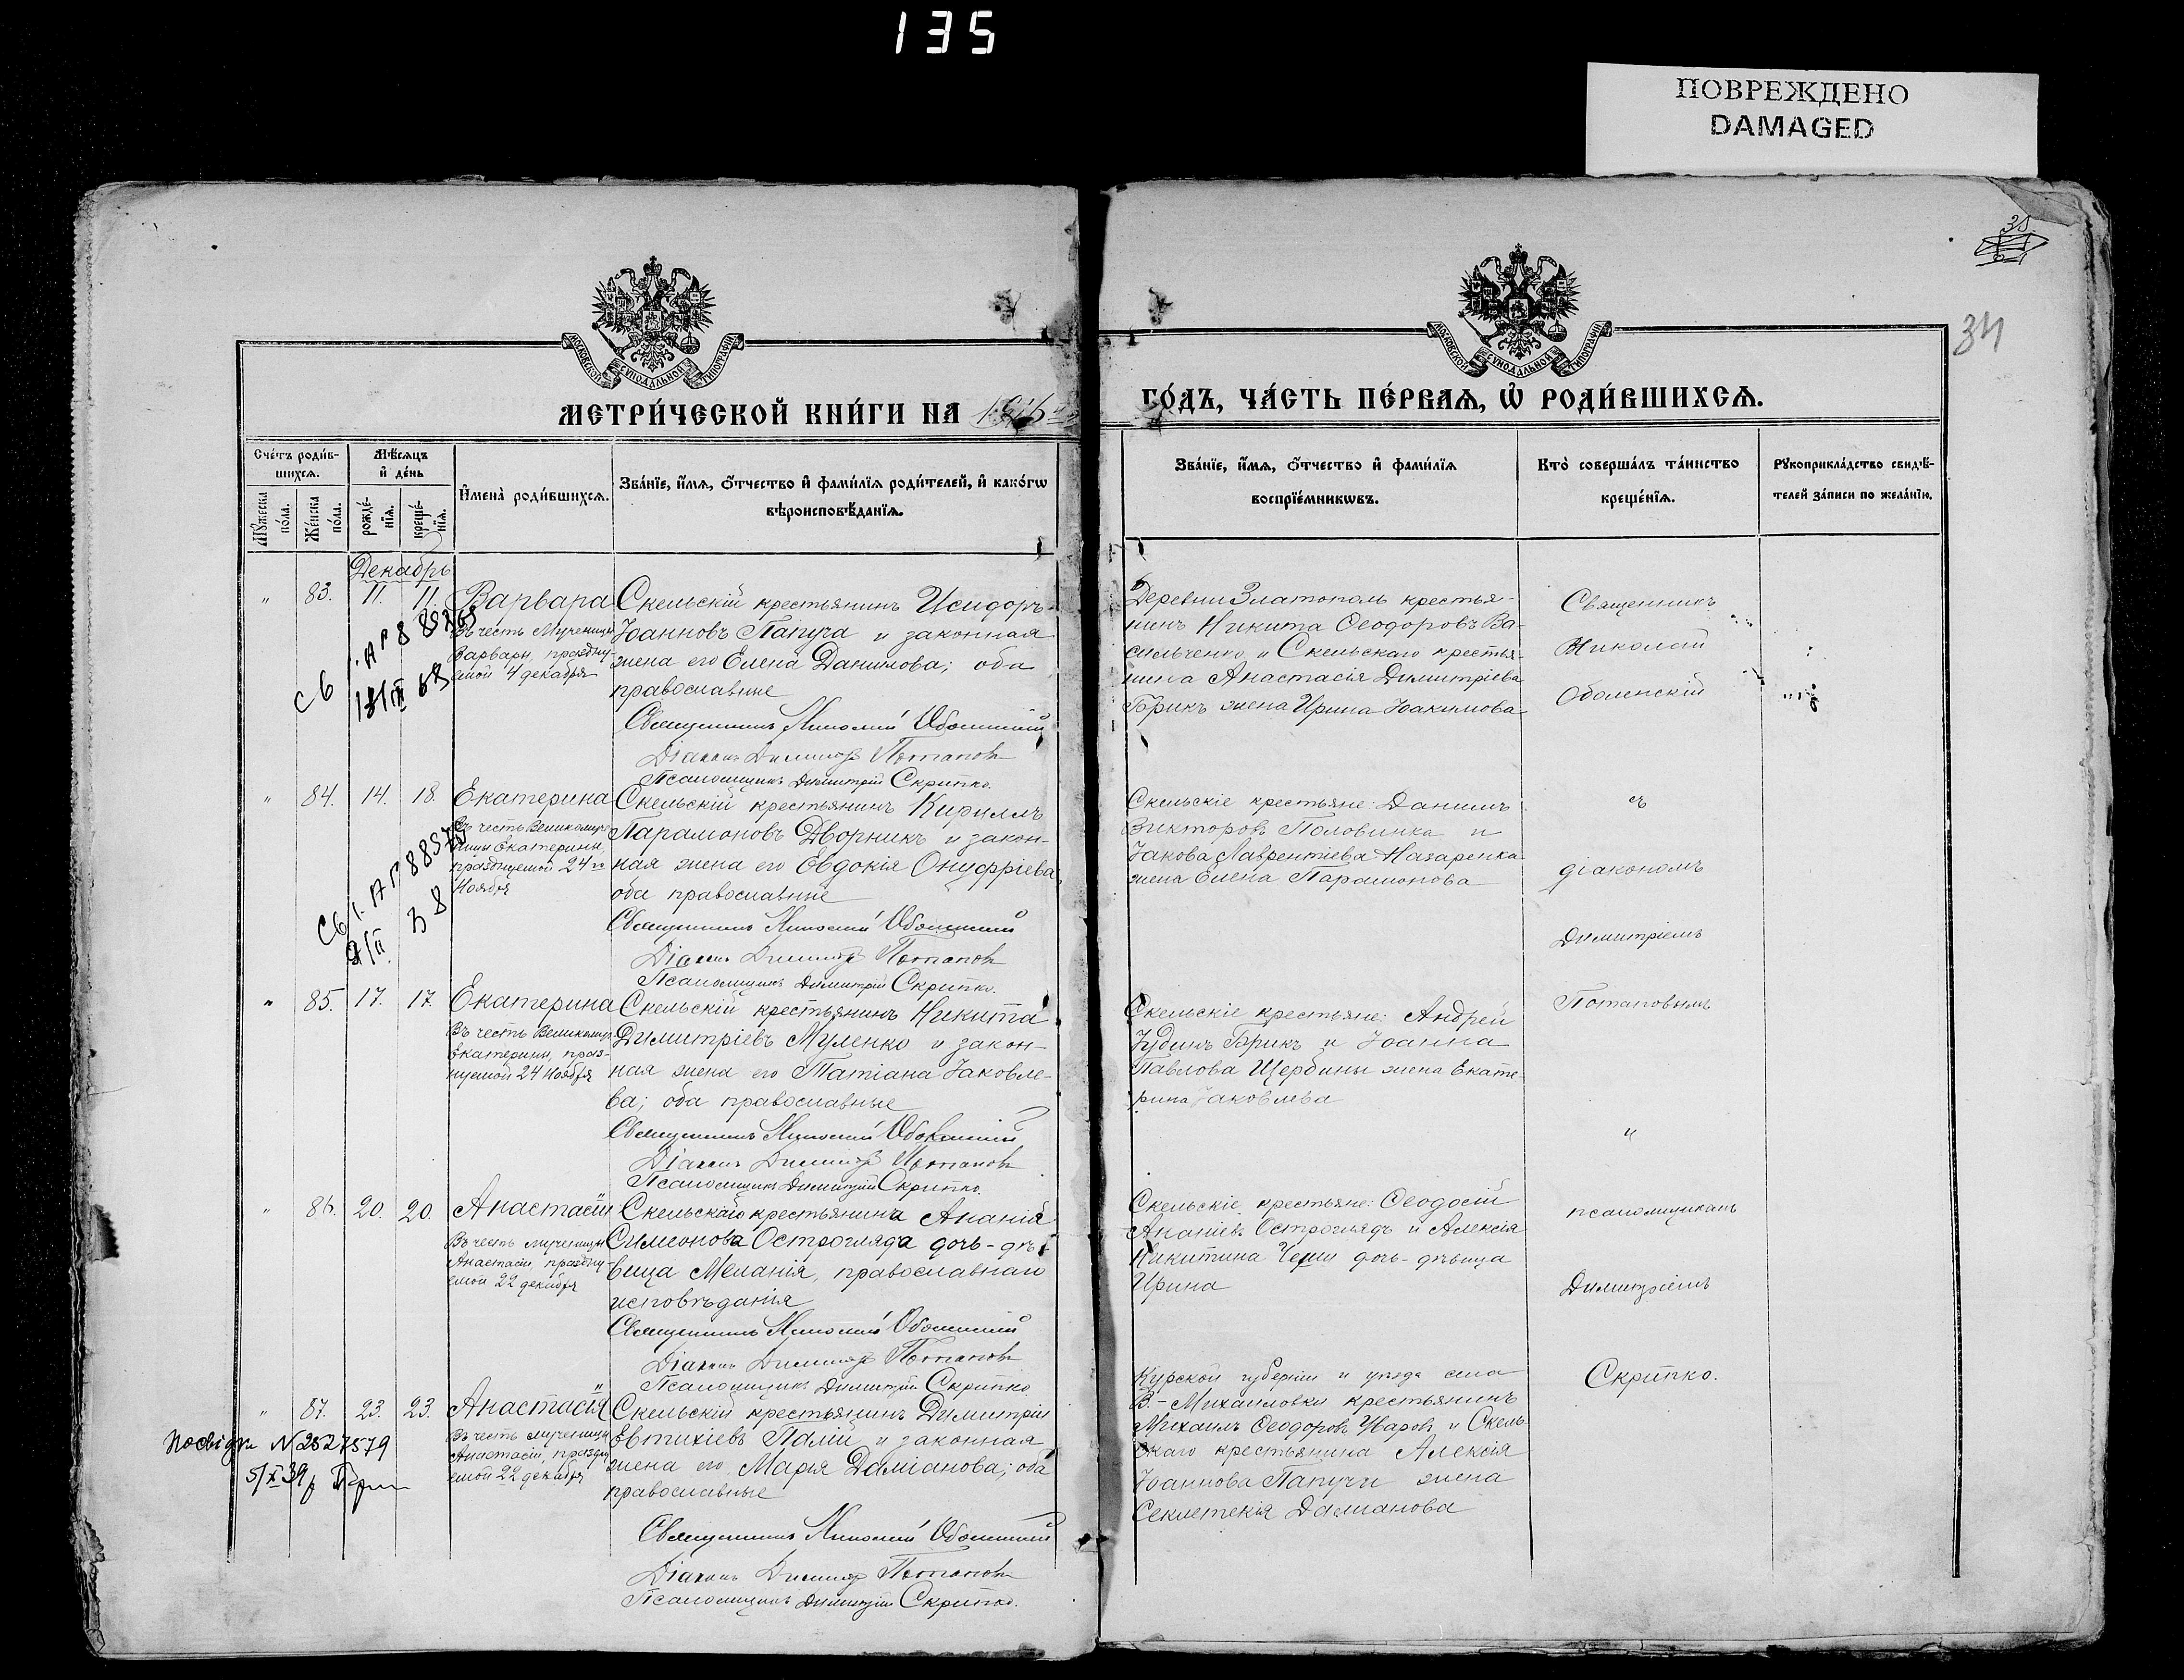 135
ПОВРЕЖДЕНО
DAMAGED
38
34
МОСКОВСКОЙ СѴНОДАЛЬНОЙ ТИПОГРАФІИ
МОСКОВСКОЙ СѴНОДАЛЬНОЙ ТИПОГРАФІИ
МЕТРИ́ЧЕСКОЙ КНИ́ГИ НА
ГО́ДЪ, ЧА́СТЬ ПЕ́РВАѦ, Ѡ РОДИ́ВШИХСѦ.
Сче́тъ роди́в-
шихсѧ.
Мꙋжеска
по́ла.
Же́нска
по́ла.
Мѣ́сѧцъ
и҆ де́нь
рожде́-
нїѧ.
креще́-
нїѧ.
И҆мена̀ роди́вшихсѧ.
Зва́нїе, и҆́мѧ, о҆́тчество и҆ фами́лїѧ роди́телей, и҆ како́гѡ
вѣроисповѣ́данїѧ.
Зва́нїе, и҆́мѧ, о҆́тчество и҆ фами́лїѧ
воспрїе́мникѡвъ.
Кто̀ соверша́лъ та́инство
креще́нїѧ.
Рꙋкоприкла́дство свидѣ́-
телей за́писи по жела́нїю.
Декабрь
" 83. 11. 11. Варвара
Въ честь Мученицы
Варвары, праздну-
емой 4 декабря
Скельскій крестьянинъ Исидоръ
Іоанновъ Папуча и законная
жена его Елена Данилова; оба
православные
Священникъ Николай Оболенскій
Діаконъ Димитрій Потаповъ
Псаломщикъ Димитрій Скрипко.
Деревни Златополь крестья-
нинъ Никита Ѳеодоровъ Ва-
сильченко и Скельскаго крестья-
нина Анастасія Димитріева
Борикъ жена Ирина Іоакимова
Священникъ
Николай
Оболенскій
" 84. 14. 18. Екатерина
Въ честь Великомуч-
ницы Екатерины,
празднуемой 24 го
Ноября
Скельскій крестьянинъ Кириллъ
Парамоновъ Дворникъ и закон-
ная жена его Евдокія Онуфріева,
оба православные
Священникъ Николай Оболенскій
Діаконъ Димитрій Потаповъ
Псаломщикъ Димитрій Скрипко.
Скельскіе крестьяне: Даниилъ
Викторовъ Половинка и
Іакова Лаврентіева Назаренка
жена Елена Парамонова
съ
діакономъ
Димитріемъ
Потаповымъ
" 85. 17. 17. Екатерина
Въ честь Великомуч.
Екатерины, праз-
нуемой 24 Ноября
Скельскій крестьянинъ Никита
Димитріевъ Муленко и закон-
ная жена его Татіана Іаковле-
ва; оба православные
Священникъ Николай Оболенскій
Діаконъ Димитрій Потаповъ
Псаломщикъ Димитрій Скрипко.
Скельскіе крестьяне: Андрей
Іудинъ Борикъ и Іоанна
Павлова Щербины жена Екате-
рина Іаковлева
и
" 86. 20. 20. Анастасіи
Въ честь мученицы
Анастасіи, праздну-
емой 22 декабря
Скельскаго крестьянина Ананія
Симеонова Острогляда дочь-дѣ-
вица Меланія, православнаго
исповѣданія
Священникъ Николай Оболенскій
Діаконъ Димитрій Потаповъ
Псаломщикъ Димитрій Скрипко
Скельскіе крестьяне: Ѳеодосій
Ананіевъ Остроглядъ и Алексія
Никитина дочь-дѣвица
Ирина
псаломщикомъ
Димитріемъ
Скрипко.
" 87. 23. 23. Анастасія
Въ честь мученицы
Анастасіи, праздну-
емой 22 декабря
Скельскій крестьянинъ Димитрій
Евтихіевъ Палій и законная
жена его Марѳа Даміанова; оба
православные
Священникъ Николай Оболенскій
Діаконъ Димитрій Потаповъ
Псаломщикъ Димитрій Скрипко.
Курской губерніи и уезда села
В.-Михайловки крестьянинъ
Михаилъ Ѳеодоровъ Уваровъ и Скель-
скаго крестьянина Алексія
Іоаннова Папучи жена
Секлетикія Даміанова
Посвідки N 2527579
5/X 39 р